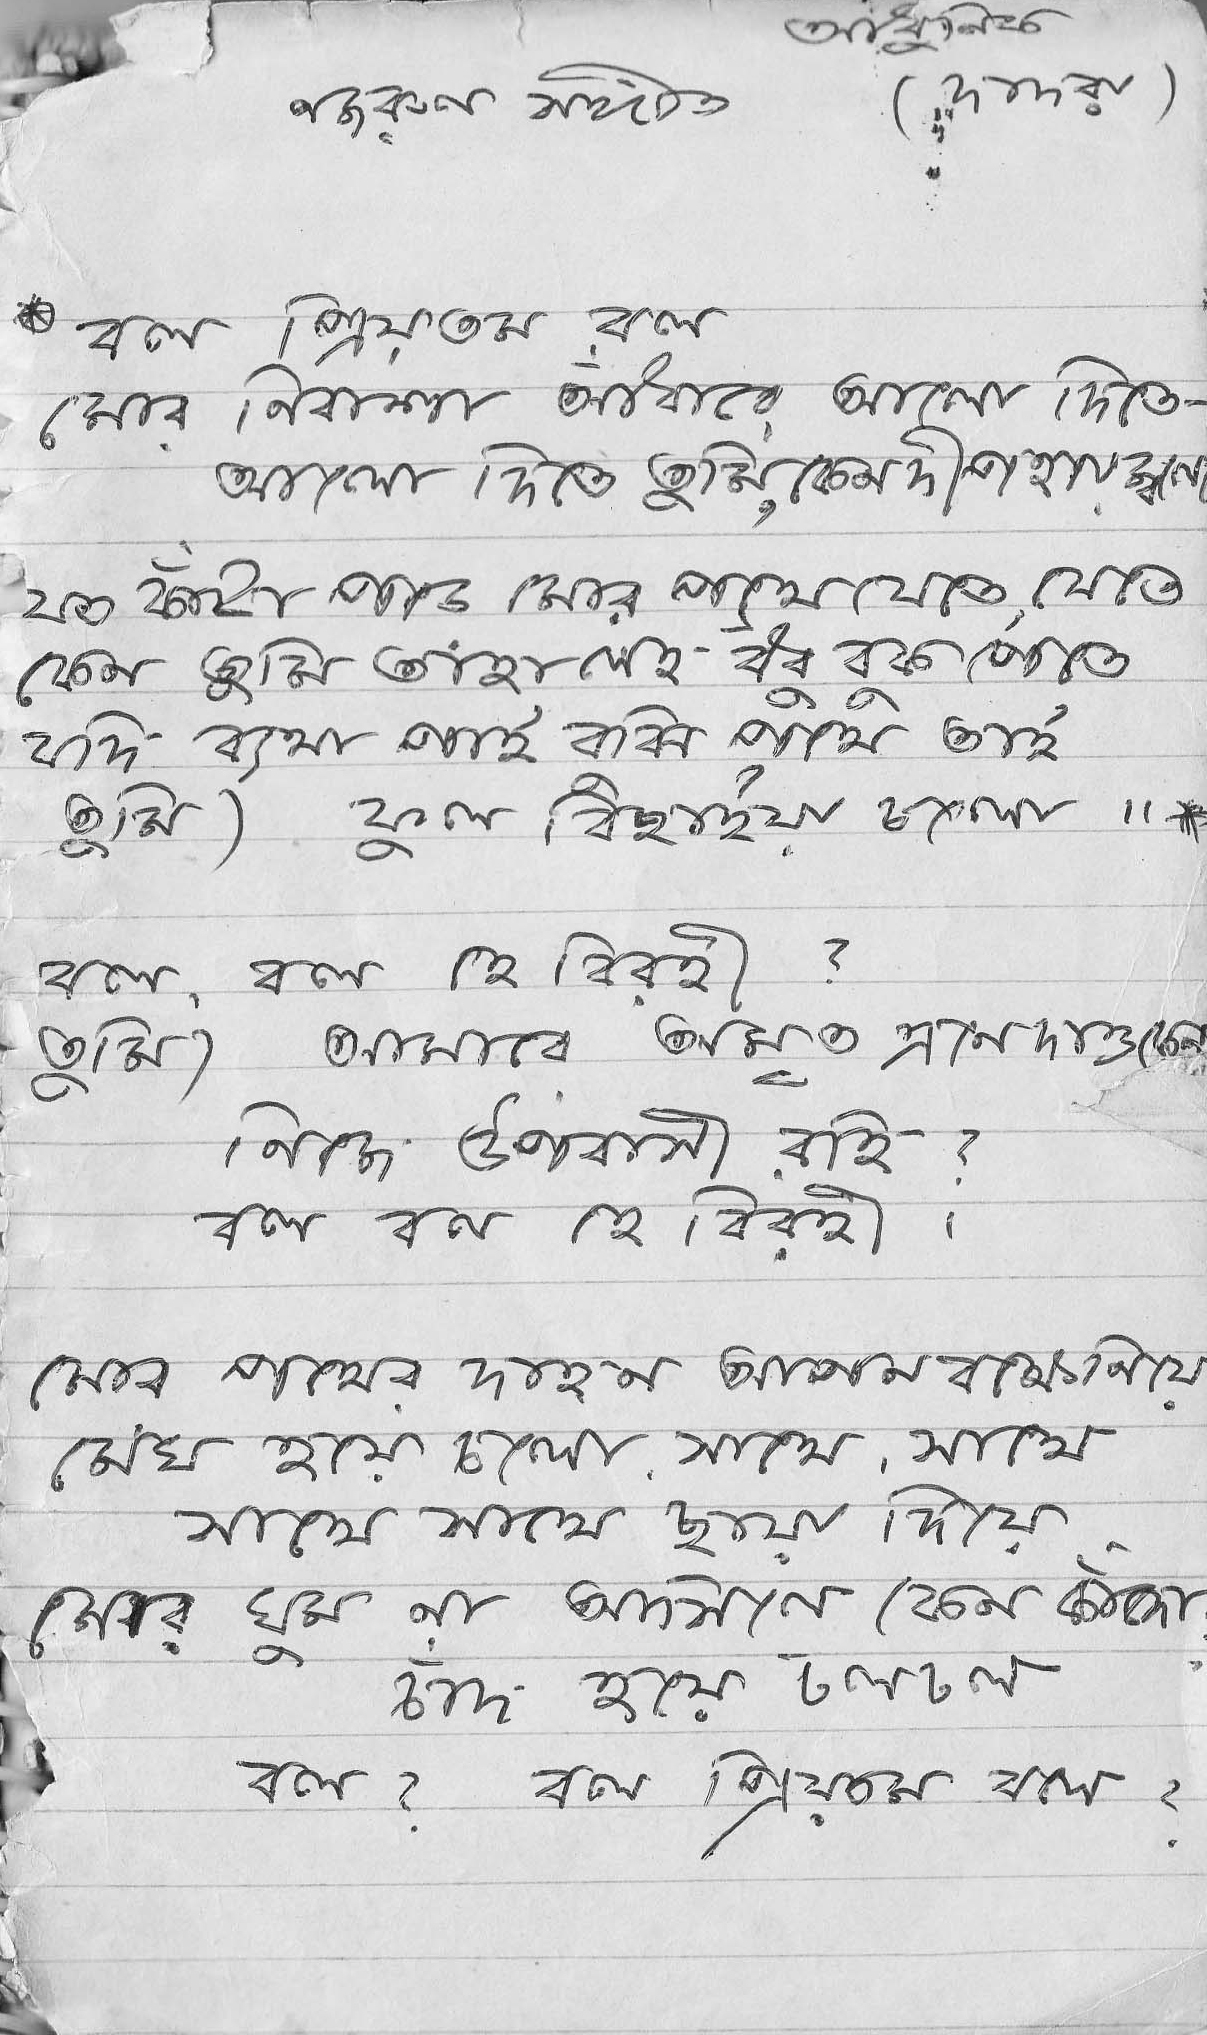 আধুনিক
নজরুল সঙ্গীত (দাদরা)
* বল প্রিয়তম বল
মোর নিরাশা আঁধারে আলো দিতে-
আলো দিতে তুমি, কেন দীপ হয়ে জ্বলো
যত কাঁটা পড়ে মোর পথে যেতে, যেতে
কেন তুমি তাহা লহ বঁধু বুক পেতে
যদি ব্যথা পাই বুঝি পথে তাই
তুমি) ফুল বিছাইয়া চলো ॥ *
বল, বল হে বিরহী ?
তুমি) আমারে অমৃত এনে দাও কেন
নিজে উপবাসী রহি ?
বল বল হে বিরহী ।
মোর পথের দাহন আপন বক্ষে নিয়ে
মেঘ হয়ে চলো, সাথে, সাথে
সাথে সাথে ছায়া দিয়ে
মোর ঘুম না আসিলে কেন কাঁদো
চাঁদ হয়ে ঢলঢল
বল ? বল প্রিয়তম বল ?